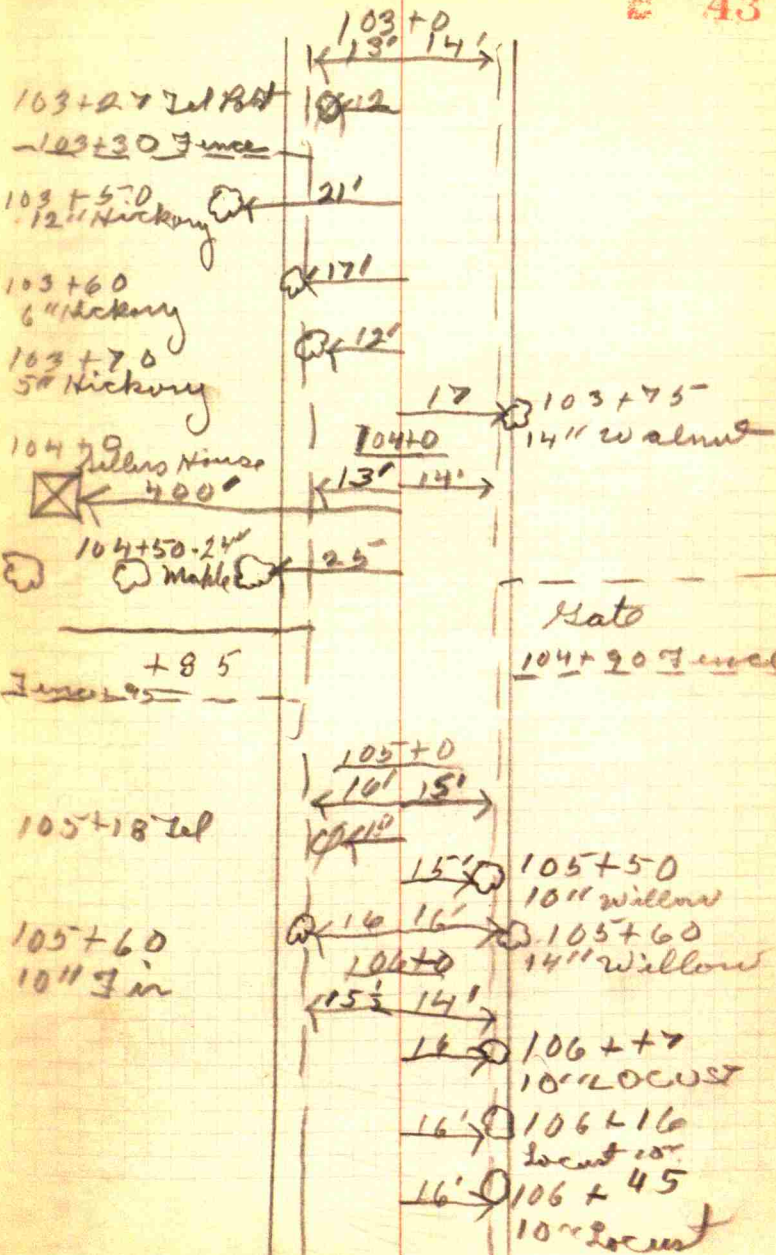 43
103+0
13' 14'
103+27 Tel Post
12
103+30 Fence
103+50
12" Hickory
21'
103+60
6" Hickory
17'
103+70
5" Hickory
12'
17
103+75
14" Walnut
104+0
104+0
House
13' 14'
400'
104+50-24"
Maple
25
Gate
+85
104+90 Fence
Fence+95
105+0
16' 15'
105+18 Tel
15'
105+50
10" Willow
105+60
10" Fir
16 16'
105+60
14" Willow
106+0
15½ 14'
16
106++7
10" LOCUST
16'
106+16
Locust 10"
16'
106+45
10" Locust